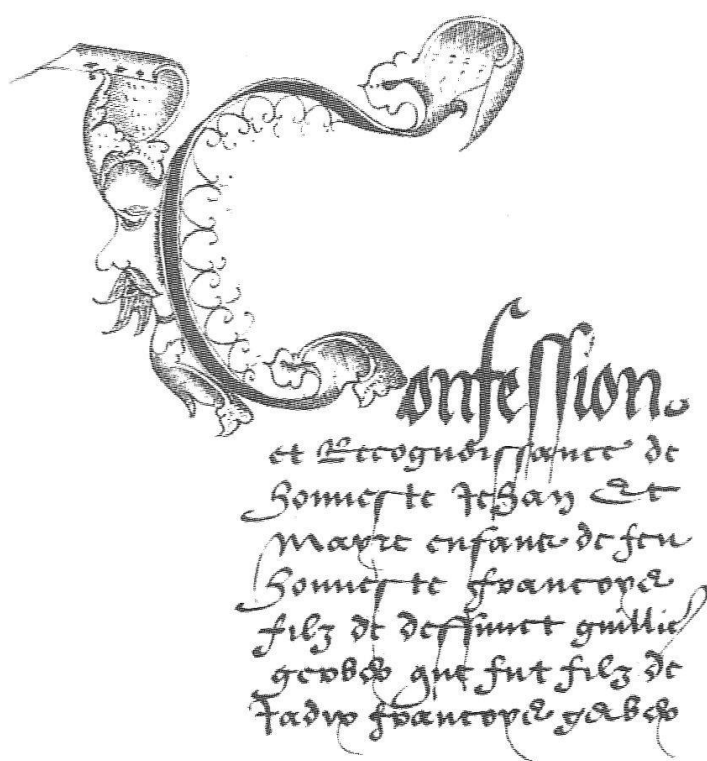 Confession
et Recognoissance de
honneste Jehan Et
Mayre enfans de feu
honneste francoys
filz de deffunct guillie
gerber que fut filz de
Jadix francoys gerber